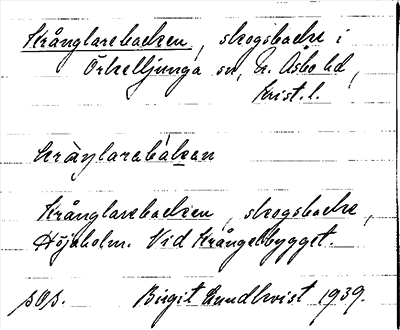 Krånglarebacken, skogsbacke i
Örkelljunga sn, N. Åsbo hd,
Krist. l.
kråŋlarebákan
Krånglarebacken, skogsbacke,
Höjaholm. Vid Krångelbygget.
sgs. Birgit Lundkvist 1939.